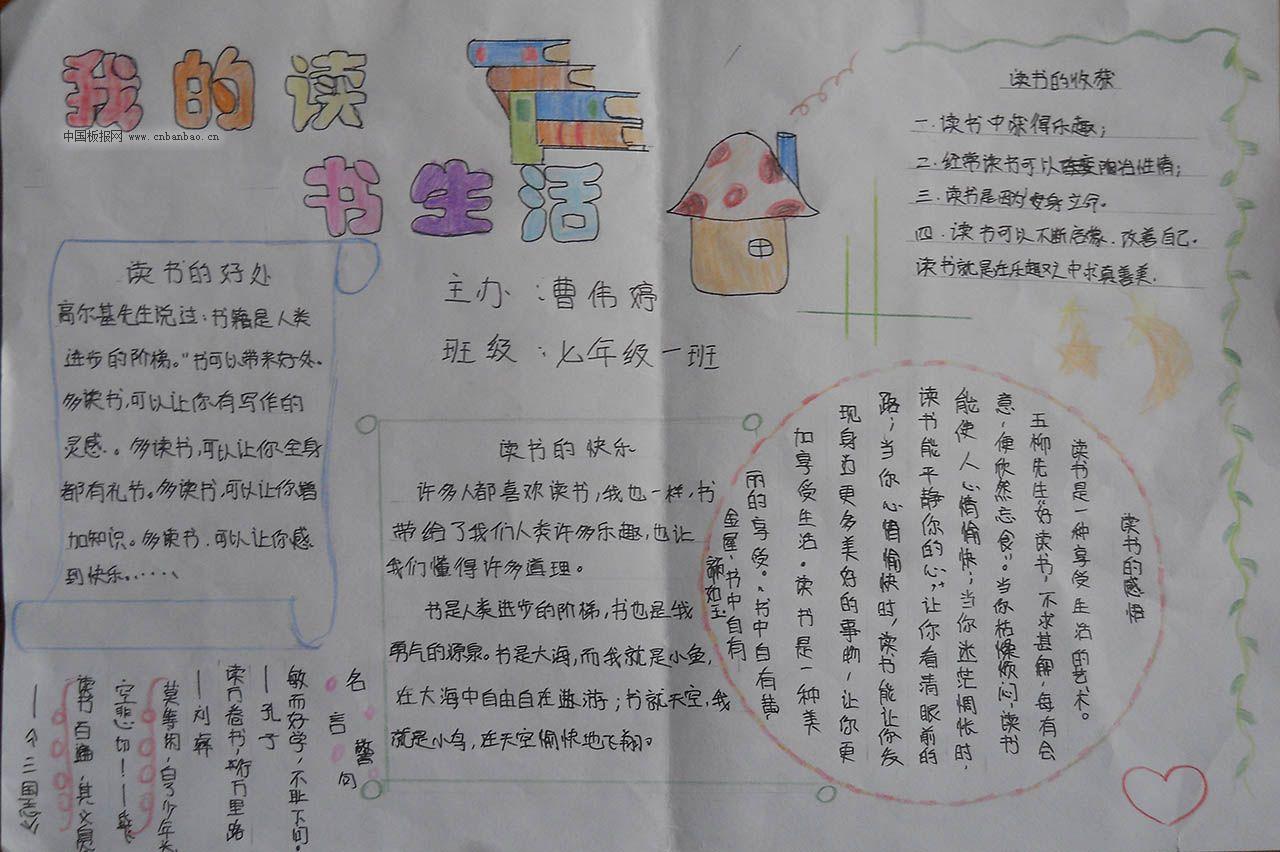 我的读
书生活
中国板报网 www.cnbanbao.cn
主办：曹伟婷
班级：七年级一班
读书的好处
高尔基先生说过：书籍是人类
进步的阶梯。"书可以带来好处。
多读书,可以让你有写作的
灵感。多读书,可以让你全身
都有礼节。多读书,可以让你增
加知识。多读书.可以让你感
到快乐。……
读书的快乐
许多人都喜欢读书,我也一样,书
带给了我们人类许多乐趣,也让
我们懂得许多道理。
书是人类进步的阶梯,书也是我
勇气的源泉。书是大海,而我就是小鱼,
在大海中自由自在遨游；书就天空,我
就是小鸟,在天空愉快地飞翔。
读书的收获
一.读书中获得乐趣；
二.经常读书可以陶冶性情；
三.读书是因为安身立命。
四.读书可以不断启蒙.改善自己.
读书就是在乐趣中求真善美.
读书的感悟
读书是一种享受生活的艺术。
五柳先生"好读书,不求甚解,每有会
意,便欣然忘食"。当你枯燥烦闷,读书
能使人心情愉快；当你迷茫惆怅时,
读书能平静你的心,让你看清眼前的
路；当你心情愉快时,读书能让你发
现身边更多美好的事物,让你更
加享受生活。读书是一种美
丽的享受。"书中自有黄
金屋,书中自有
颜如玉
名言警句
敏而好学,不耻下问。
——孔子
读万卷书 行万里路
——刘彝
莫等闲,白了少年头
空悲切！——岳飞
读书百遍,其义自见
——《三国志》